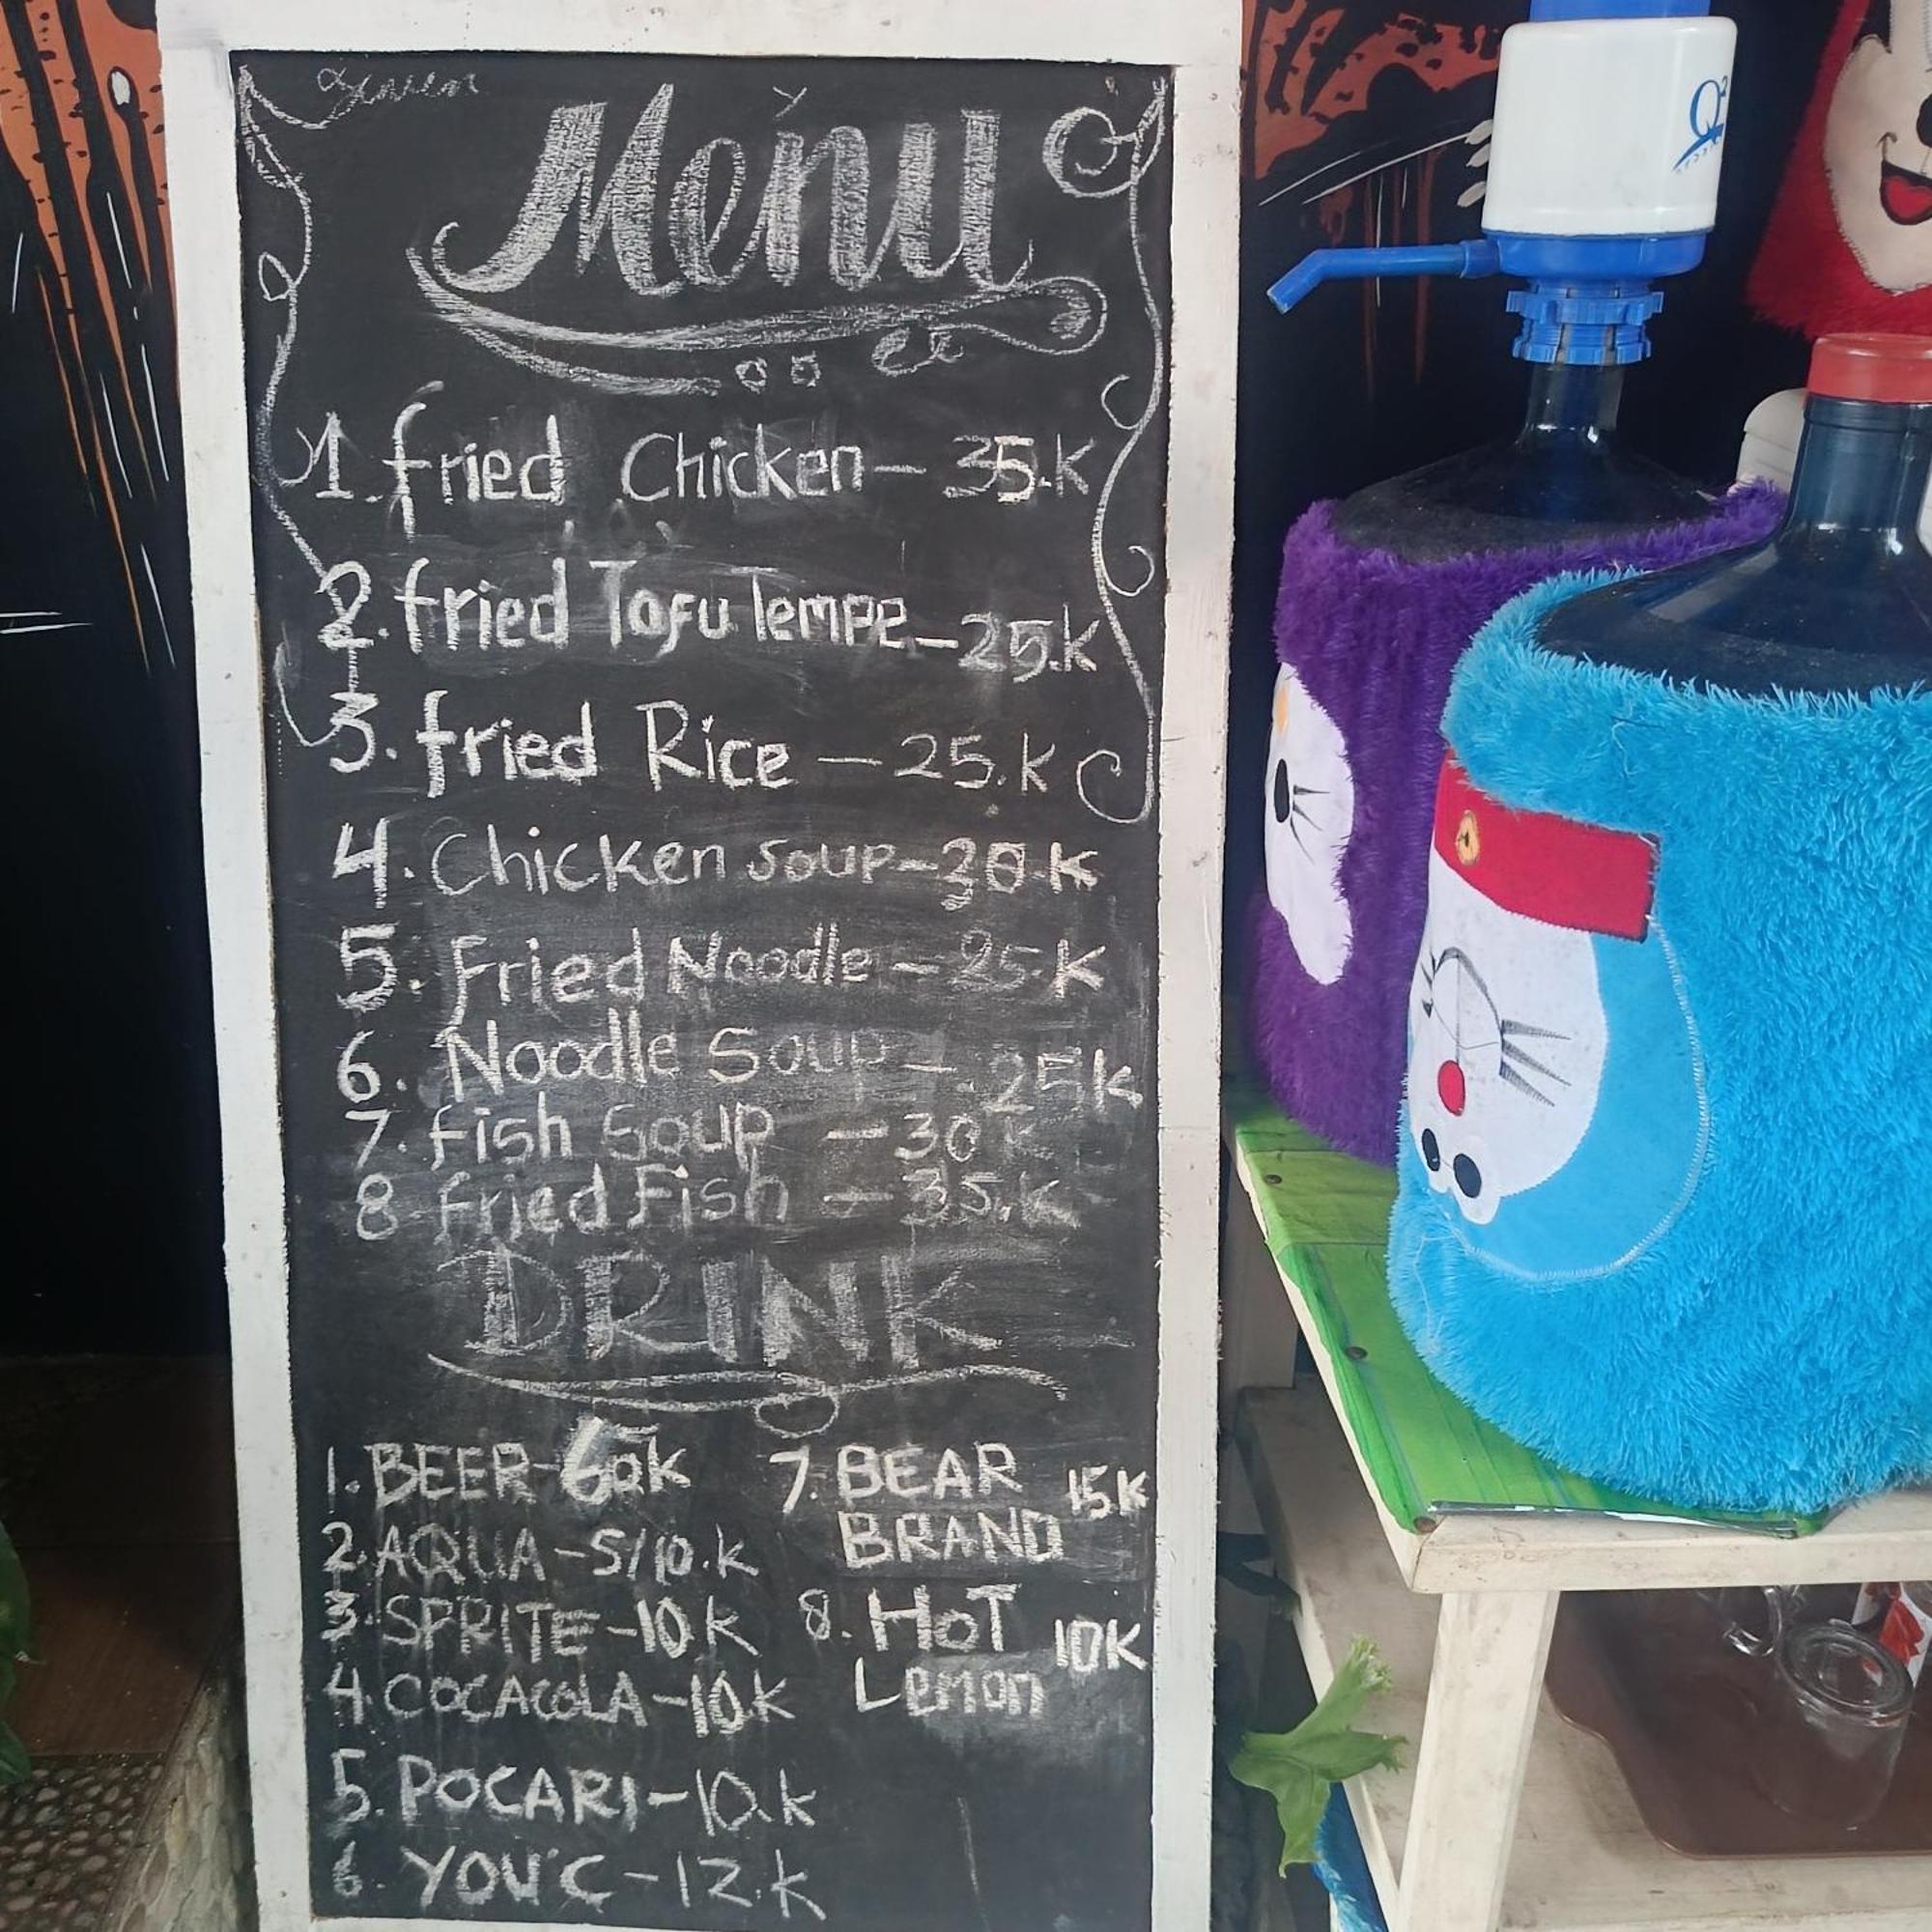 Menu
1. fried Chicken - 35.K
2. fried Tofu Tempe - 25.K
3. fried Rice - 25.K
4. Chicken soup - 30.K
5. Fried Noodle - 25.K
6. Noodle Soup - 25K
7. fish Soup - 30 K
8 fried Fish - 35.K
DRINK
1. BEER - 60K
2. AQUA - 5/10.K
3. SPRITE - 10.K
4. COCACOLA - 10.K
5. POCARI - 10.K
6. YOU'C - 12.K
7. BEAR
BRAND 15K
8. HOT
Lemon 10K